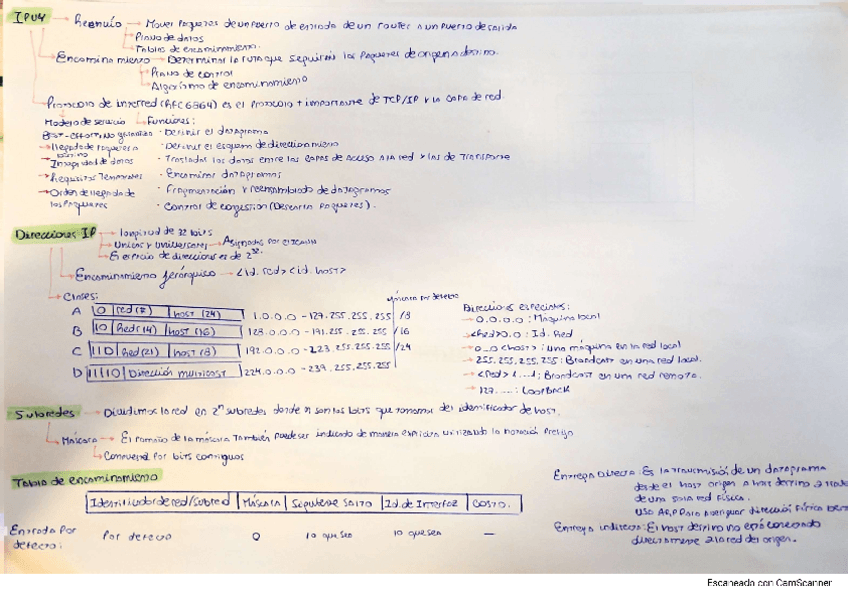 IPv4 → Reenvío → Mover paquetes de un puerto de entrada de un router a un puerto de salida
→ Plano de datos
→ Tablas de encaminamiento.
→ Encaminamiento → Determinar la ruta que seguirán los paquetes de origen a destino.
→ Plano de control
→ Algoritmo de encaminamiento
→ Protocolo de interred (RFC 6864) es el protocolo + importante de TCP/IP y la capa de red.
Modelo de servicio → Funciones:
Best-effort/No garantizado · Definir el datagrama
→ Llegada de paquetes a destino · Definir el esquema de direccionamiento
→ Integridad de datos · Trasladar los datos entre las capas de acceso a la red y las de transporte
→ Requisitos temporales · Encaminar datagramas
→ Orden de llegada de los paquetes · Fragmentación y reensamblado de datagramas
· Control de congestión (Descarta paquetes).
Direcciones IP → longitud de 32 bits
→ Unicas y universales → Asignadas por el
→ El espacio de direcciones es de 2^32.
→ Encaminamiento jerárquico → <id. red> <id. host>
→ Clases: máscara por defecto
A 0 red (7) host (24) 1.0.0.0 - 127.255.255.255 /8
B 10 Red (14) host (16) 128.0.0.0 - 191.255.255.255 /16
C 110 Red (21) host (8) 192.0.0.0 - 223.255.255.255 /24
D 1110 Dirección multicast 224.0.0.0 - 239.255.255.255
Direcciones especiales:
→ 0.0.0.0: Maquina local
→ <Red>0.0: Id. Red
→ 0..0 <host>: una máquina en la red local
→ 255.255.255.255: Broadcast en una red local.
→ <Red> 1...1: Broadcast en una red remota.
→ 127.....: Loopback
Subredes → Dividimos la red en 2^n subredes donde n son los bits que tomamos del identificador de host.
→ Máscara → El tamaño de la máscara también puede ser indicado de manera explícita utilizando la notación prefijo
→ Compuesta por bits contiguos
Tabla de encaminamiento
Identificador de red/subred Máscara Siguiente Salto Id. de Interfaz Costo.
Entrada por defecto: Por defecto 0 lo que sea lo que sea —
Entrega Directa: Es la transmisión de un datagrama
desde el host origen a host destino a través
de una sola red física.
USO ARP para averiguar dirección física
Entrega indirecta: El host destino no está conectado
directamente a la red del origen.
Escaneado con CamScanner